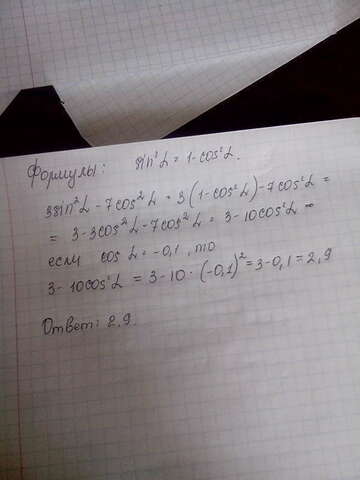 Формулы: sin²α = 1 - cos²α.
3sin²α - 7cos²α = 3(1-cos²α) - 7cos²α =
= 3 - 3cos²α - 7cos²α = 3 - 10cos²α =
если cos α = -0,1, то
3 - 10cos²α = 3 - 10 · (-0,1)² = 3 - 0,1 = 2,9
Ответ: 2,9.